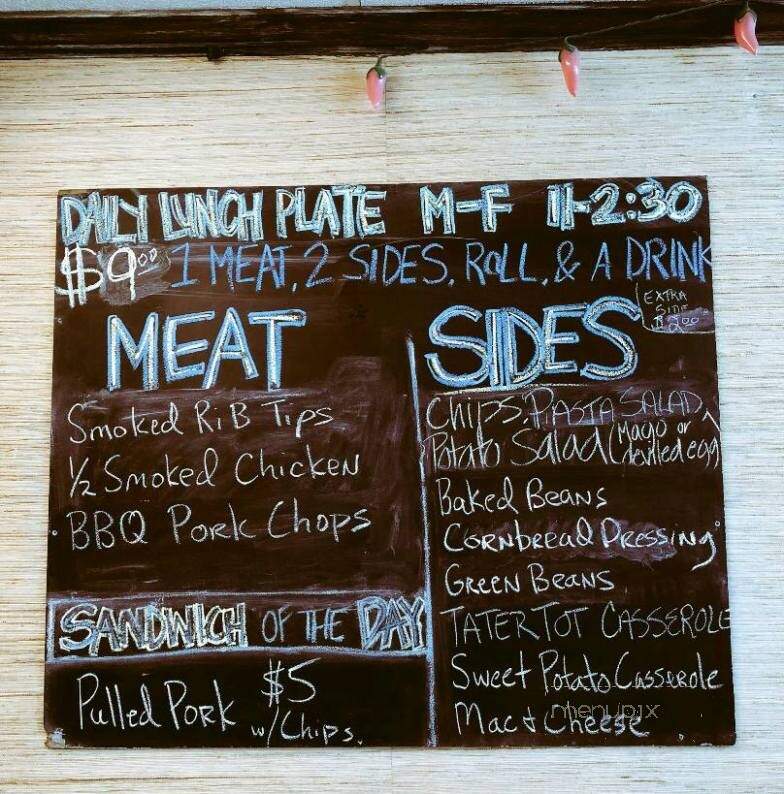 DAILY LUNCH PLATE M-F 11-2:30
$9.00 1 MEAT, 2 SIDES, ROLL, & A DRINK
MEAT
Smoked RiB Tips
1/2 Smoked Chicken
BBQ Pork Chops
SANDWICH OF THE DAY
Pulled Pork $5
w/Chips.
EXTRA
Side
$2.00
SIDES
Chips, PASTA SALAD,
Potato Salad (Mayo or
deviled egg)
Baked Beans
Cornbread Dressing
Green Beans
TATER TOT CASSEROLE
Sweet Potato Casserole
Mac & Cheese
menupix